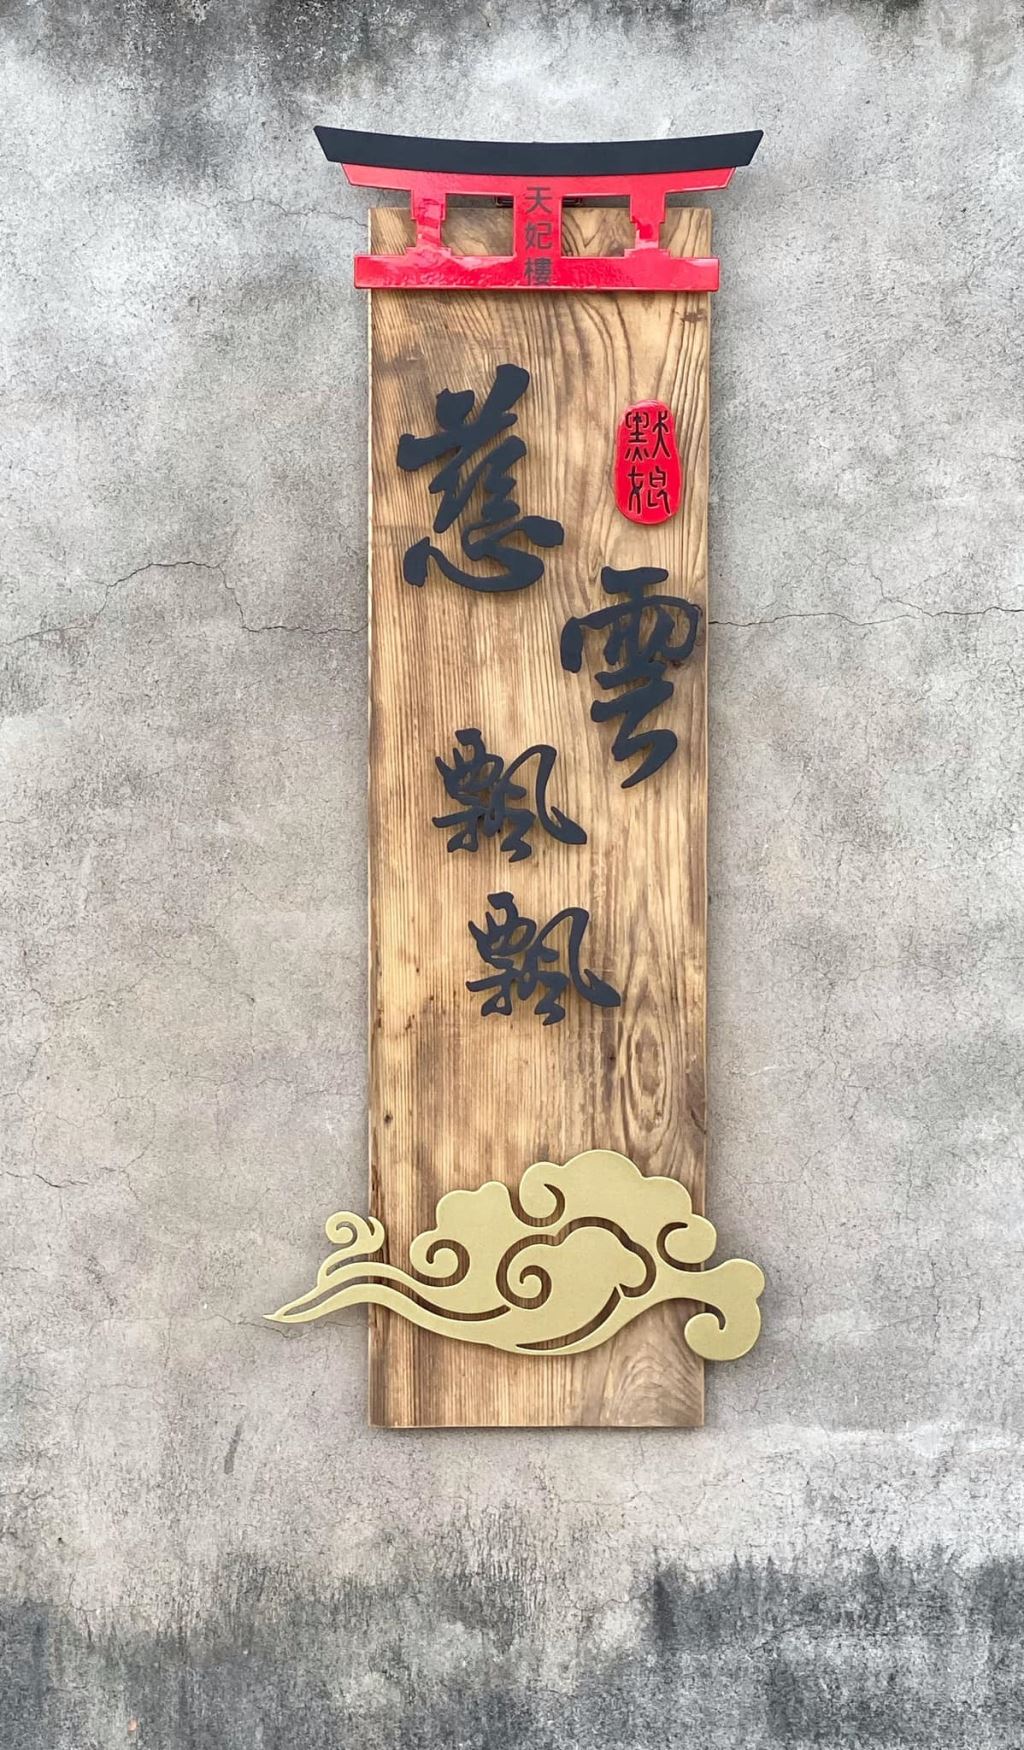 天妃樓
默娘
慈雲飄飄